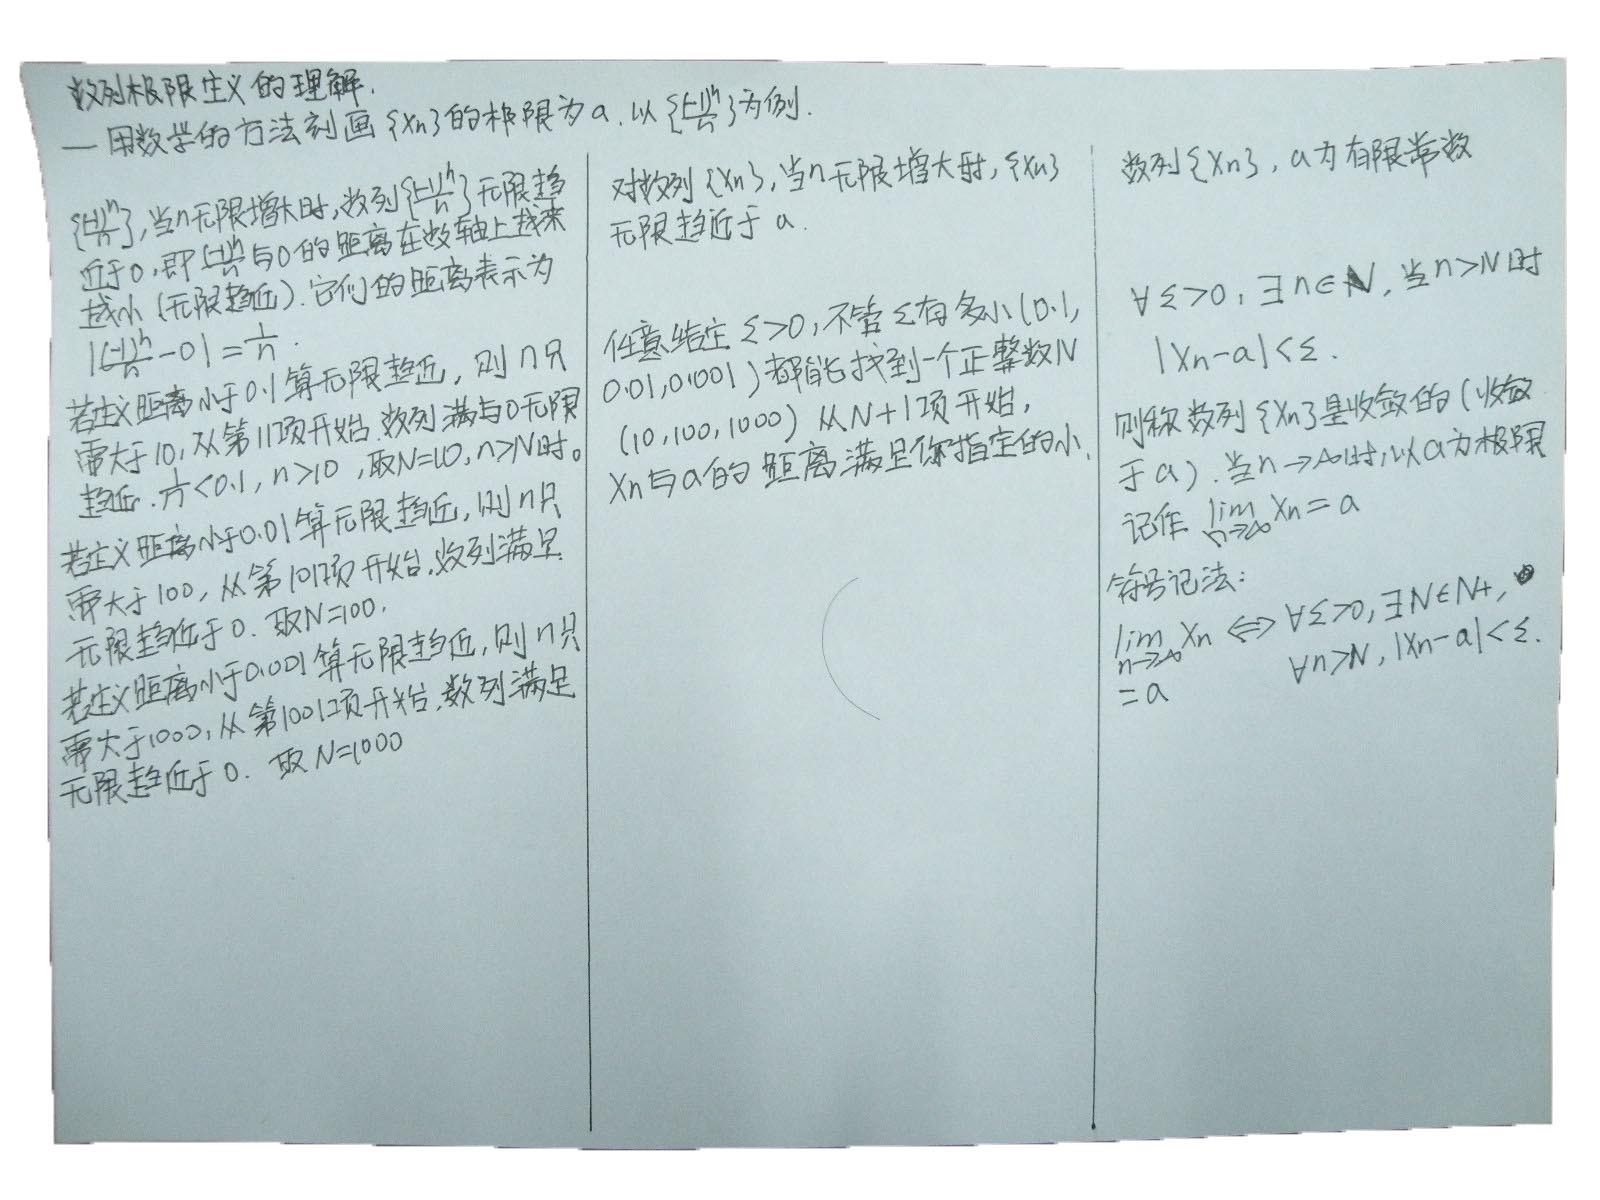 数列极限定义的理解.
— 用数学的方法刻画{Xn}的极限为a.以{(-1)ⁿ/n}为例.
{(-1)ⁿ/n},当n无限增大时,数列{(-1)ⁿ/n}无限趋
近于0,即(-1)ⁿ/n与0的距离在数轴上越来
越小(无限趋近).它们的距离表示为
|(-1)ⁿ/n-0|=1/n.
若定义距离小于0.1算无限趋近,则n只
需大于10,从第11项开始.数列满与0无限
趋近.1/n<0.1,n>10,取N=10,n>N时。
若定义距离小于0.01算无限趋近,则n只
需大于100,从第101项开始,数列满足
无限趋近于0.取N=100.
若定义距离小于0.001算无限趋近,则n只
需大于1000,从第1001项开始,数列满足
无限趋近于0. 取N=1000
对数列{Xn},当n无限增大时,{Xn}
无限趋近于a.
任意给定Σ>0,不管Σ有多小(0.1,
0.01,0.001)都能找到一个正整数N
(10,100,1000)从N+1项开始,
Xn与a的距离满足你指定的小.
数列{Xn},a为有限常数
∀Σ>0,∃n∈N,当n>N时
|Xn-a|<Σ.
则称数列{Xn}是收敛的(收敛
于a).当n→∞时,以a为极限
记作 lim n→∞ Xn=a
符号记法:
lim n→∞ Xn ⇔ ∀Σ>0,∃N∈N+,
=a ∀n>N,|Xn-a|<Σ.